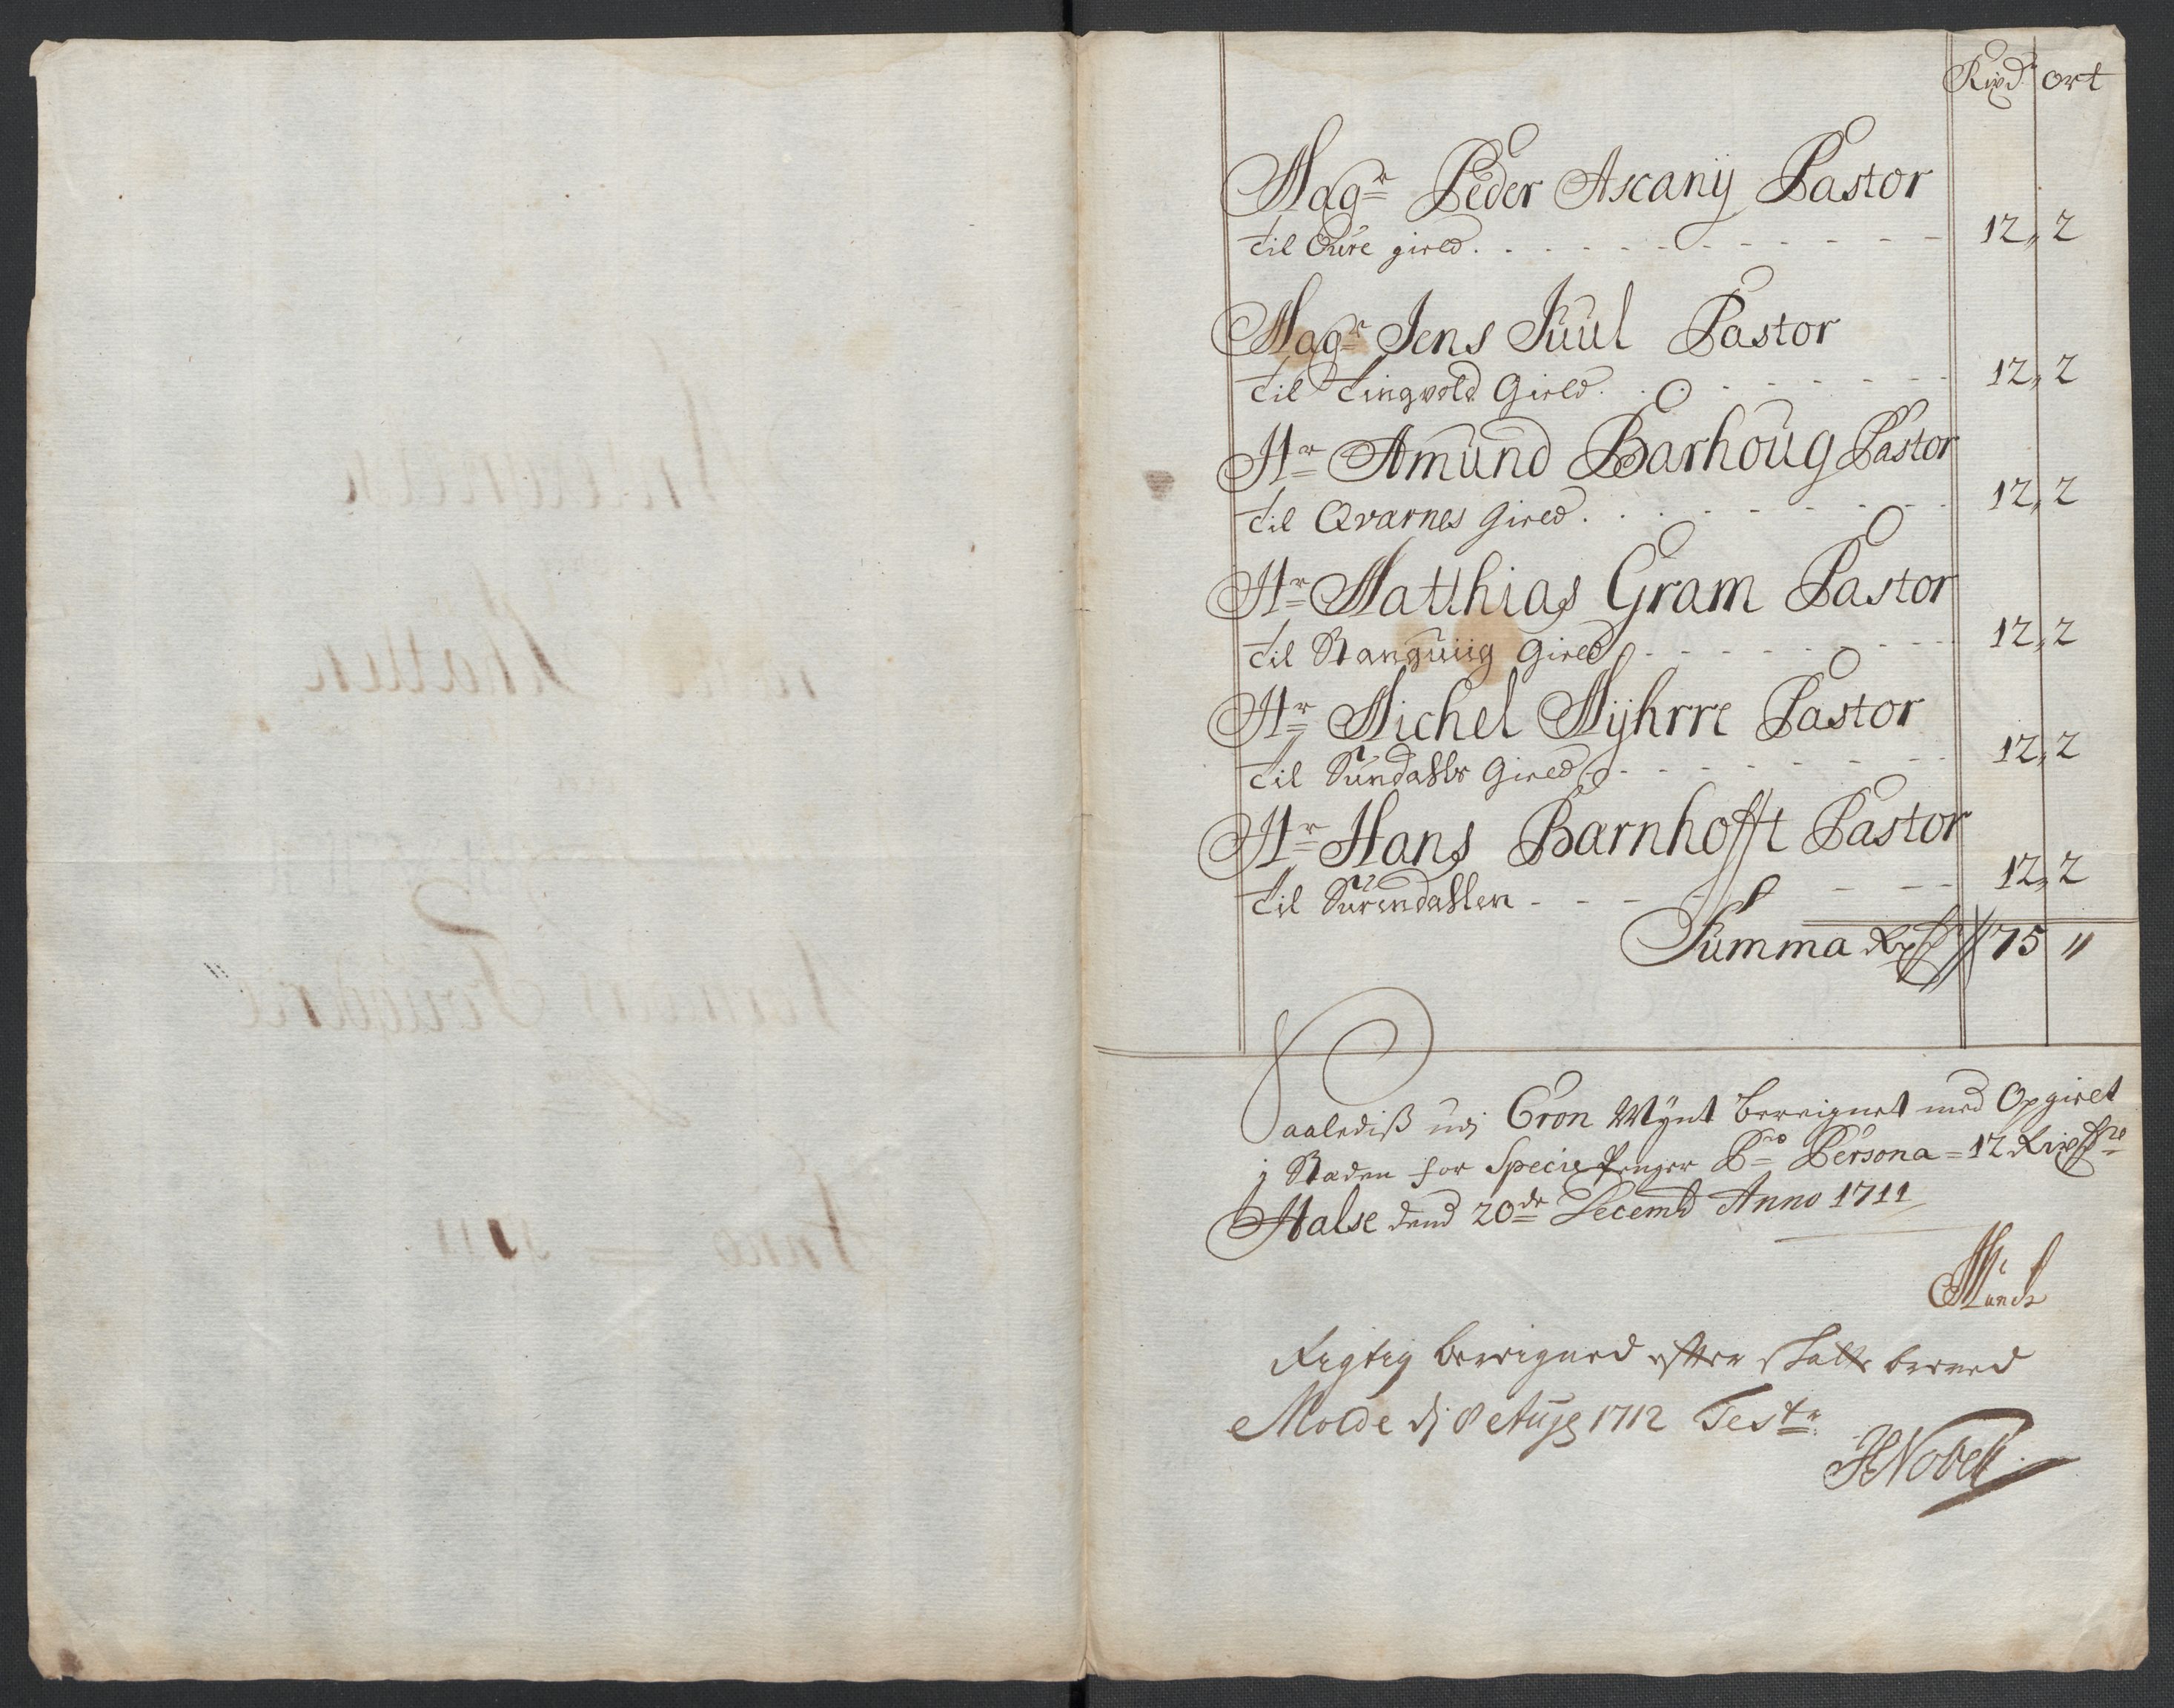 Rixdr ort
Magr Peder Ascanij Pastor
til Øure gield 12 „ 2
Magr Jens Juul Pastor
til Tingvold Gield 12 „ 2
Hr Amund Barhoug Pastor
til Qvarnes Gield 12 „ 2
Hr Matthias Gram Pastor
til Stanguiig Gield 12 „ 2
Hr Michel Mÿhrre Pastor
til Sundahls Gield 12 „ 2
Hr Hans Barnhofft Pastor
til Surendahlen 12 „ 2
Summa 75 „
Saalediß udj Cron Mÿnt bereignet med Opgield
j Staden for Specie penger Pro Persona = 12
Halse dend 20de Decemb Anno 1711
Munch
Rigtig bereigned efter
Molde dj 8 Aug 1712 Testr
HNobell